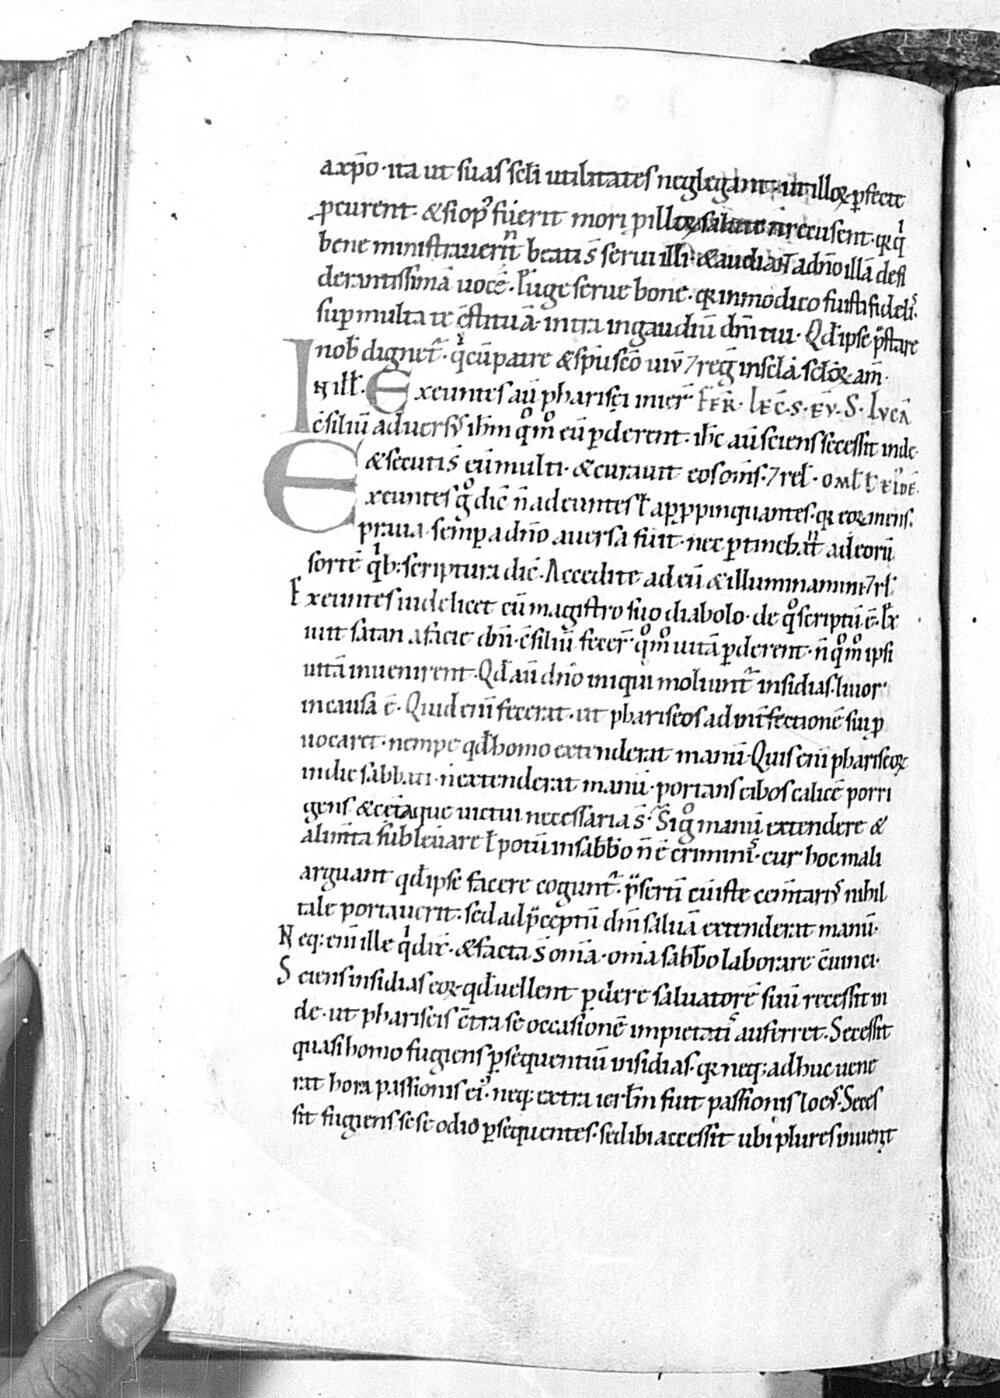 a xp̄o · ita ut suas seli utilitates neglegant · ut illoꝝ ꝑfecte
ꝓcurent · & si op' fuerit mori ꝓ illoꝝ salute n̄ recusent · qꝛ qͥ
bene ministraverīt beati s̄ servi illi · & audiant a dn̄o illā desi
derantissimā uocē · Euge serve bone · qꝛ in modico fuisti fidelis
suꝑ multa te c̄stituā · intra in gaudiū dn̄i tui · Qd̄ ipse p̄stare
nob̄ dignet᷑ · qͥ cū patre & sp̄u sc̄o uiv̄ ⁊ reg̃ in sc̄la sc̄loꝝ am̄ ·
In ill̄ · Exeuntes aū pharisei inier̄ FER̄ · LEC̄ · S · EV̄ · S · LVCĀ
c̄siliū adversus ih̄m qͦmͦ eū ꝑderent · ih̄c aū sciens secessit inde ·
& secuti s̄ eū multi · & curavit eos om̄s · ⁊ rel̄ · OML̄
Exeuntes gͦ dic̄ n̄ adeuntes ł appropinquantes · qꝛ eoꝝ mens
prava · semꝑ a dn̄o aversa fuit · nec ꝑtinebat ad eorū
sortē qͥb; scriptura dic̄ · Accedite ad eū & illuminamini ⁊ rl̄
Exeuntes videlicet cū magistro suo diabolo · de qͦ scriptū ē · Ex
iuit satan a facie dn̄i · c̄siliū fecer̄ qͦmͦ uitā ꝑderent · n̄ qͦmͦ ipsi
uitā invenirent · Qd̄ aū dn̄o iniqui moliunt᷑ insidias · livor
in causa ē · Quid enī fecerat · ut phariseos ad int̄fectionē sui ꝓ
vocaret · nempe qd̄ homo extenderat manū · Quis enī phariseoꝝ
in die sabbati · n̄ extenderat manū · portans cibos calicē porri
gens & cetaque victui necessaria s̄ · Si gͦ manū extendere &
alim̄ta sublevare ł potū in sabb̄o n̄ ē criminis · cur hoc mali
arguant qd̄ ipse facere cogunt᷑ · p̄sertī cū iste cem̄tarius nihil
tale portaverit · sed ad p̄ceptū dn̄i salvā extenderat manū ·
Neq; enī ille qͥ dix̄ · & facta s̄ om̄ia · om̄ia sabb̄o laborare
Sciens insidias eoꝝ · qd̄ vellent ꝑdere salvatorē suū recessit in
de · ut phariseis c̄tra se occasionē impietatis auferret · Secessit
quasi homo fugiens ꝑsequentiū insidias · qꝛ neq; adhuc vene
rat hora passionis ei' · neq; extra ierłm fuit passionis locus · Seces
sit fugiens sese odio ꝑsequentes · sed ibi accessit ubi plures invenit